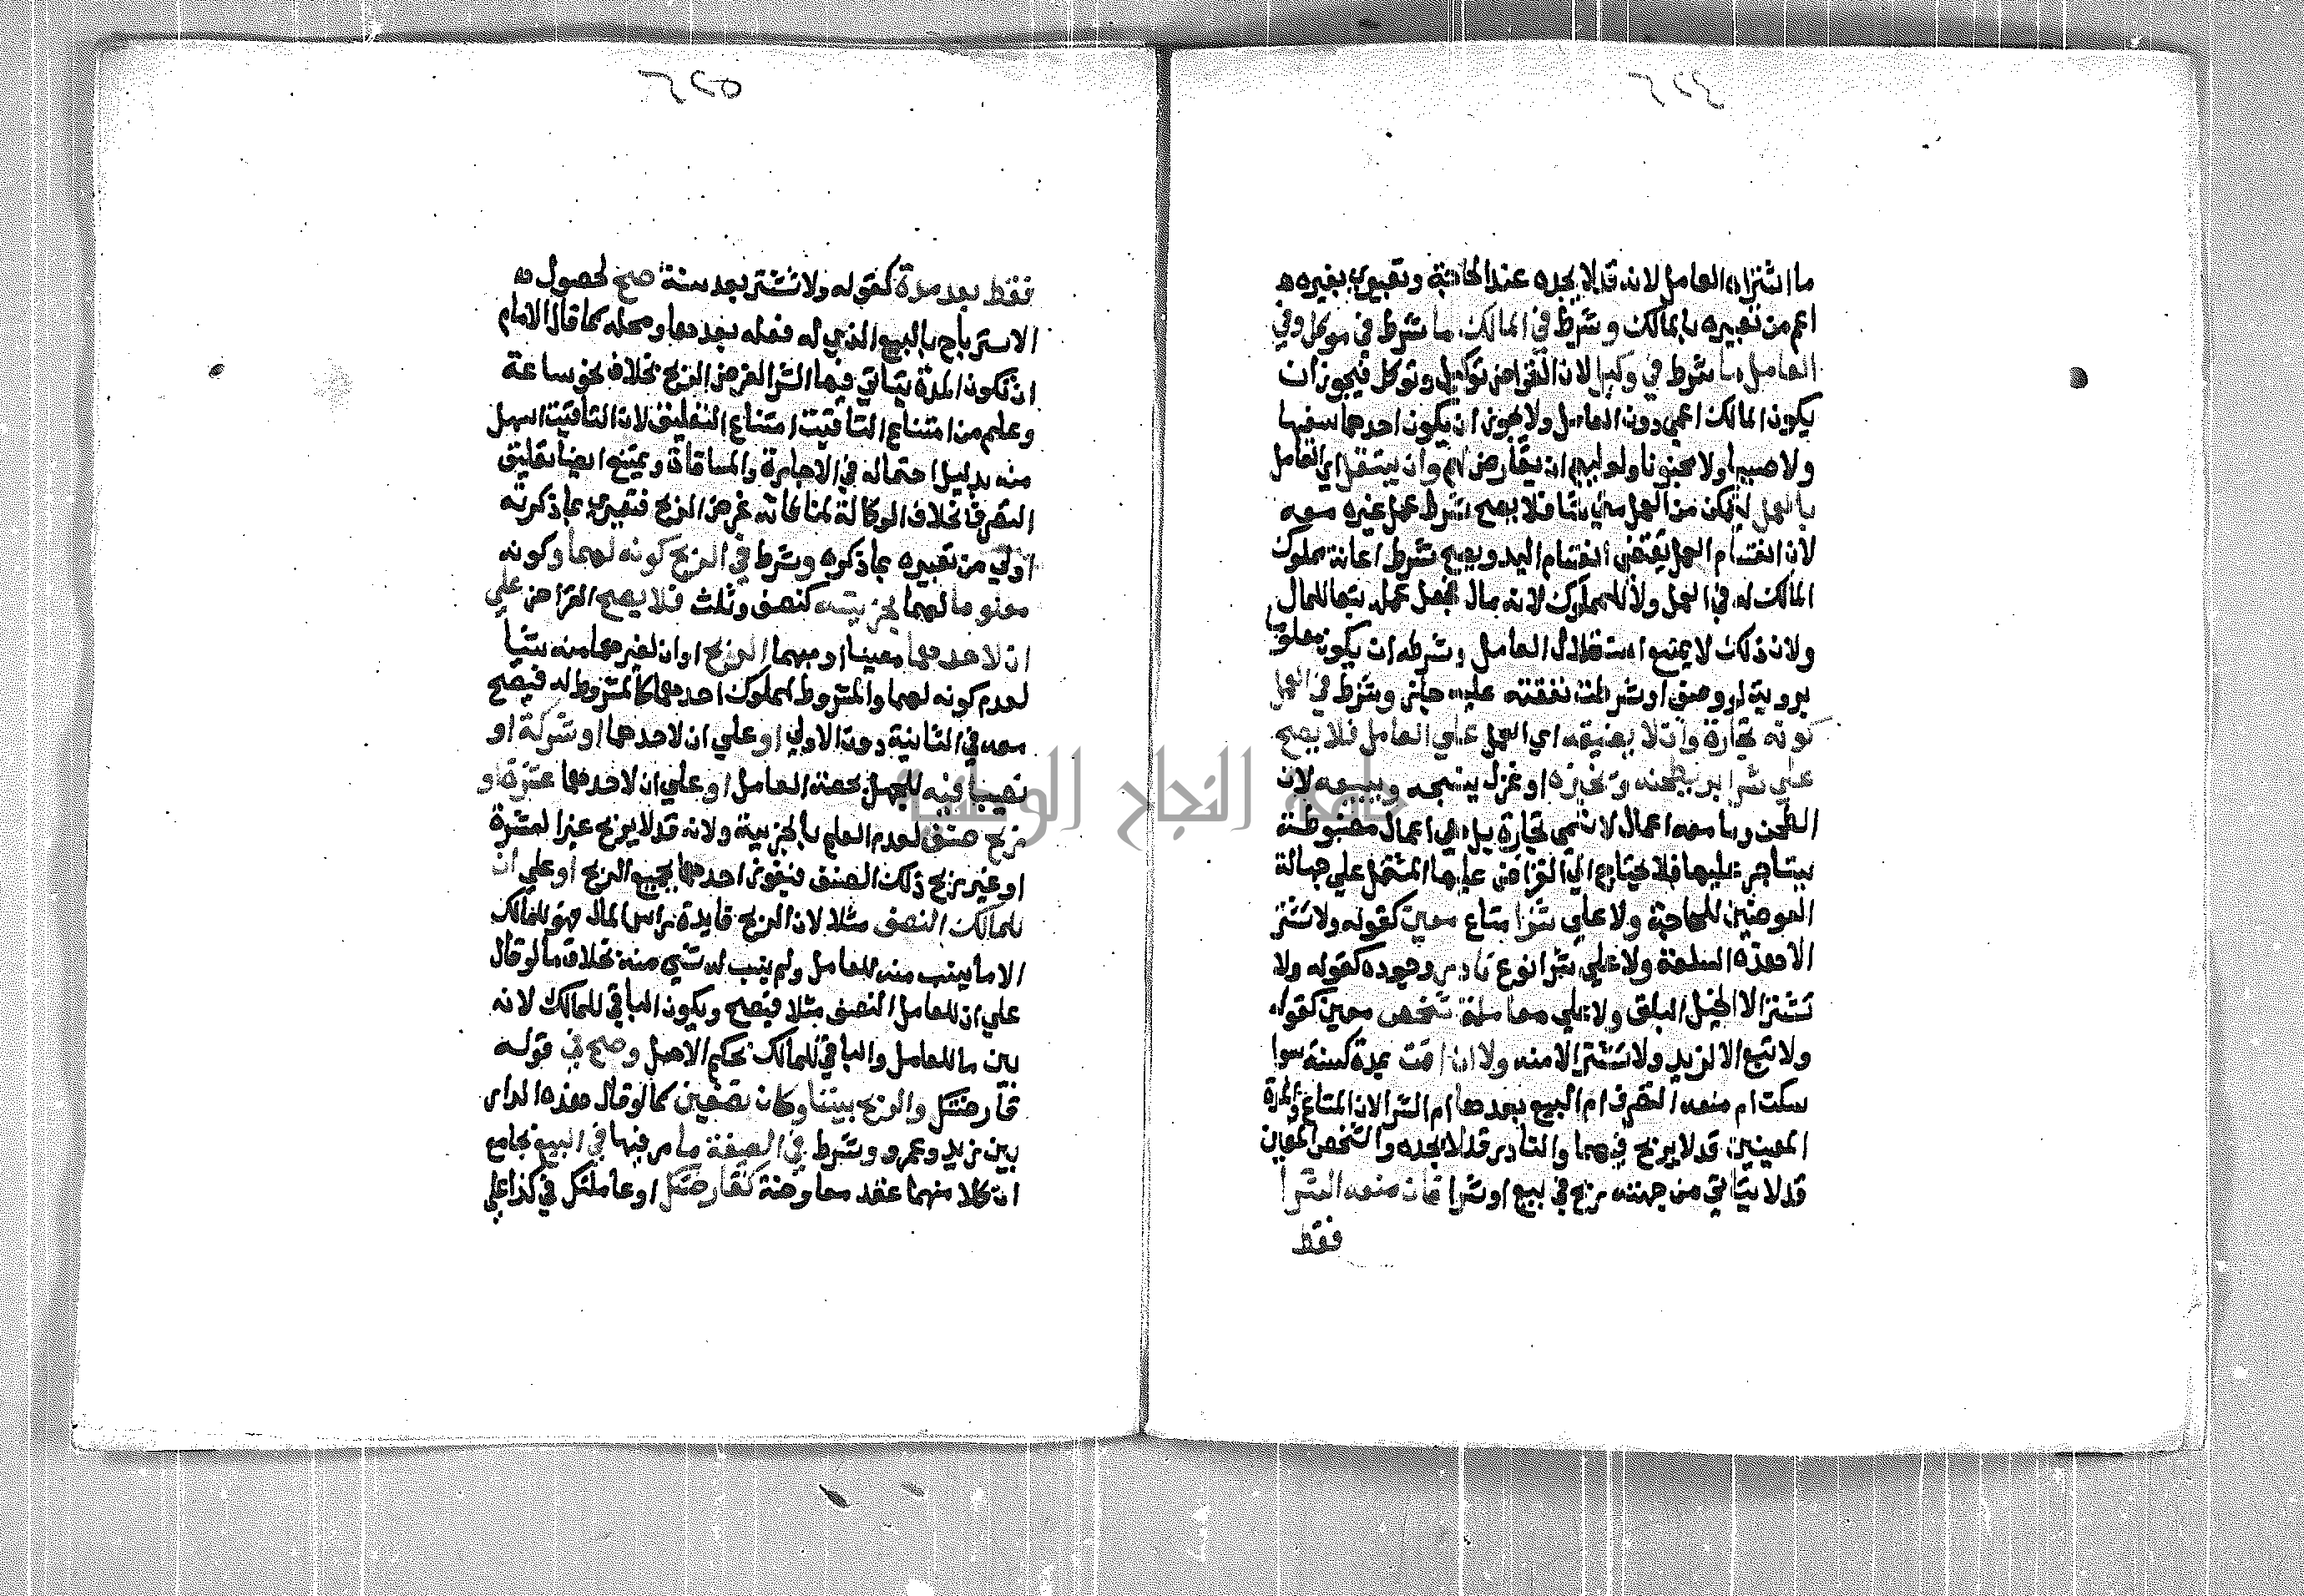 ٦٢٤
ما اشتراه العامل لانه قد لا يجده عند الحاجة وتعبيري بغيره ه
اعم من تعبيره بالمالك وشرط في المالك ما شرط في موكل وفي
العامل ما شرط في وكيل لان القراض توكيل وتوكل فيجوز ان
يكون المالك اعمي دون العامل ولا يجوز ان يكون احدهما سفيها
ولا صبيا ولا مجنونا ولوليهم ان يقارض لهم وان يستقل اي العامل
بالعمل ليتمكن من العمل متي شا فلا يصح شرط عمل غيره معه
لان انقسام العمل يقتضي انقسام اليد ويصح شرط اعانة مملوك
المالك له في العمل ولا للمملوك لانه مال فجعل عمله تبعا للمال
ولان ذلك لا يمنع استقلال العامل وشرطه ان يكون معلوما
بروية او وصف او شرطت نفقته عليه جاز وشرط في العمل
كونه تجارة وان لا يضيقه اي العمل علي العامل فلا يصح
علي شرا بر يطحنه ويخبزه او غزل ينسجه ويبيعه لان
الطحن وما معه اعمال لا تسمي تجارة بل هي اعمال مضبوطة
يستاجر عليها فلا يحتاج الي القراض عليها المشتمل علي جهالة
العوضين للحاجة ولا علي شرا متاع معين كقوله ولا تشتر
الا هذه السلعة ولا علي شرا نوع نادر وجوده كقوله ولا
تشتر الا الخيل البلق ولا علي معاملة شخص معين كقوله
ولا تبع الا لزيد ولا تشتر الا منه ولا ان اقت بمدة كسنة سوا
سكت ام منعه التصرف ام البيع بعدها ام الشرا لان المتاع والمدة
المعينين قد لا يربح فيهما والنادر قد لا يجده والشخص المعين
قد لا يتاتي من جهته ربح في بيع او شرا فان منعه الشرا
فقط
٦٢٥
فقط بعد مدة كقوله ولا تشتر بعد سنة صح لحصول ه
الاسترباح بالبيع الذي له فعله بعدها ومحله كما قال الامام
ان تكون المدة يتاتي فيها الشرا لغرض الربح بخلاف نحو ساعة
وعلم من امتناع التاقيت امتناع التعليق لان التاقيت اسهل
منه بدليل احتماله في الاجارة والمساقاة ويمتنع ايضا تعليق
التصرف بخلاف الوكالة لمنافاته غرض الربح فتعبيري بما ذكرته
اولي من تعبيره بما ذكره وشرط في الربح كونه لهما وكونه
معلوما لهما بجزييته كنصف وثلث فلا يصح القراض علي
ان لاحدهما معينا او مبهما الربح او ان لغيرهما منه شيا
لعدم كونه لهما والمشروط لمملوك احدهما كالمشروط له فيصح
معه في الثانية دون الاولي او علي ان لاحدهما او شركة او
نصيبا فيه للجهل بحصة العامل او علي ان لاحدهما عشرة او
ربح صنف لعدم العلم بالجزيية ولانه قد لا يربح غير العشرة
او غير ربح ذلك الصنف فيفوز احدهما بجميع الربح او علي ان
للمالك النصف مثلا لان الربح فايدة راس المال فهو للمالك
الا ما ينسب منه للعامل ولم ينسب له شي منه بخلاف ما لو قال
علي ان للعامل النصف مثلا فيصح ويكون الباقي للمالك لانه
بين ما للعامل والباقي للمالك بحكم الاصل وصح في قوله
قارضتك والربح بيننا وكان نصفين كما لو قال هذه الدار
بين زيد وعمرو وشرط في الصيغة ما مر فيها في البيع بجامع
ان كلا منهما عقد معاوضة كقارضتك او عاملتك في كذا علي
جامعة النجاح الوطنية